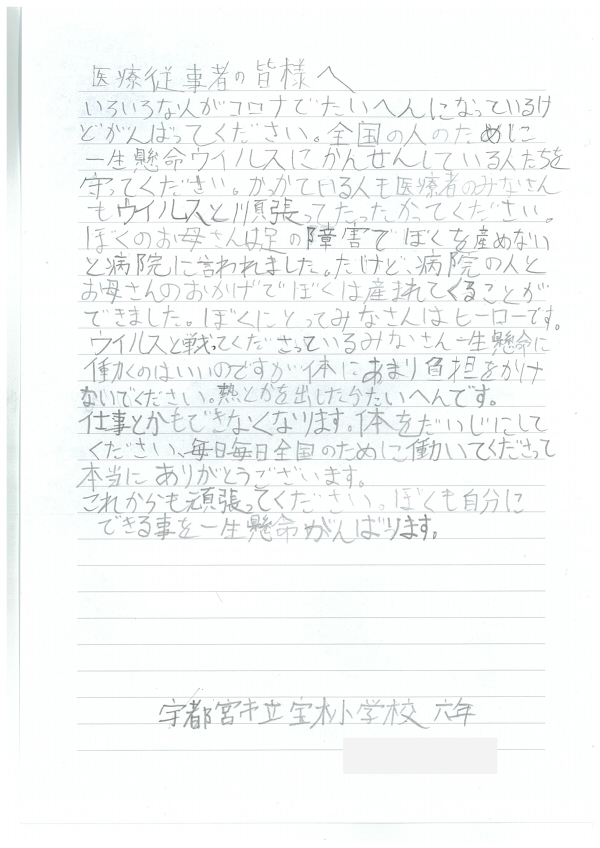 医療従事者の皆様へ
いろいろな人がコロナでたいへんになっているけ
どがんばってください。全国の人のためじに
一生懸命ウイルスにかんせんしている人たちを
守ってください。かっかている人も医療者のみなさん
もウイルスと頑張ってたったかってください。
ぼくのお母さんは足の障害でぼくを産めない
と病院に言われました。だけど、病院の人と
お母さんのおかげでぼくは産まれてくることが
できました。ぼくにとってみなさんはヒーローです。
ウイルスと戦ってくださっているみなさん一生懸命に
働くのはいいのですが体にあまり負担をかけ
ないでください。熱とかを出したらたいへんです。
仕事とかもできなくなります。体をだいじにして
ください、毎日毎日全国のために働いてくださって
本当にありがとうございます。
これからも頑張ってください。ぼくも自分に
できる事を一生懸命がんばります。
宇都宮市立宝木小学校 六年